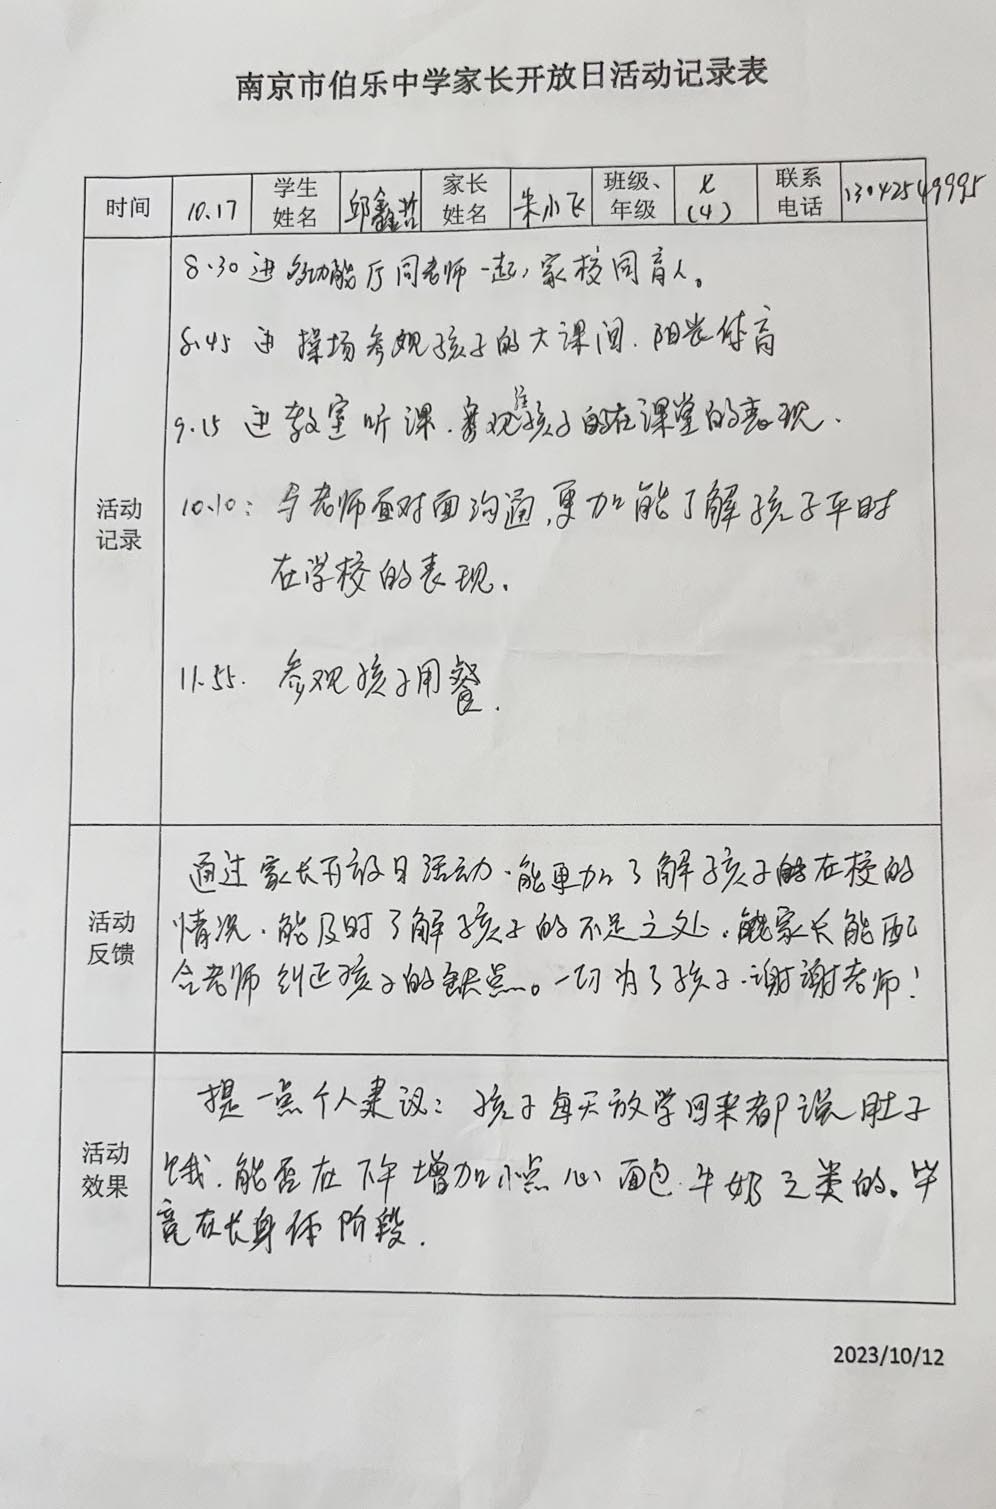 南京市伯乐中学家长开放日活动记录表
时间 10.17 学生姓名 邱鑫哲 家长姓名 朱小飞 班级、年级 七(4) 联系电话 13042549995
活动记录
8.30 进多功能厅同老师一起,家校同育人。
8.45 进操场参观孩子的大课间.阳光体育
9.15 进教室听课.参观孩子的在课堂的表现.
10.10: 与老师面对面沟通,更加能了解孩子平时
在学校的表现.
11.55. 参观孩子用餐.
活动反馈
通过家长开放日活动.能更加了解孩子在校的
情况.能及时了解孩子的不足之处.家长能配
合老师纠正孩子的缺点。一切为了孩子.谢谢老师!
活动效果
提一点个人建议:孩子每天放学回来都说肚子
饿.能否在下午增加小点心面包.牛奶之类的。毕
竟在长身体阶段.
2023/10/12